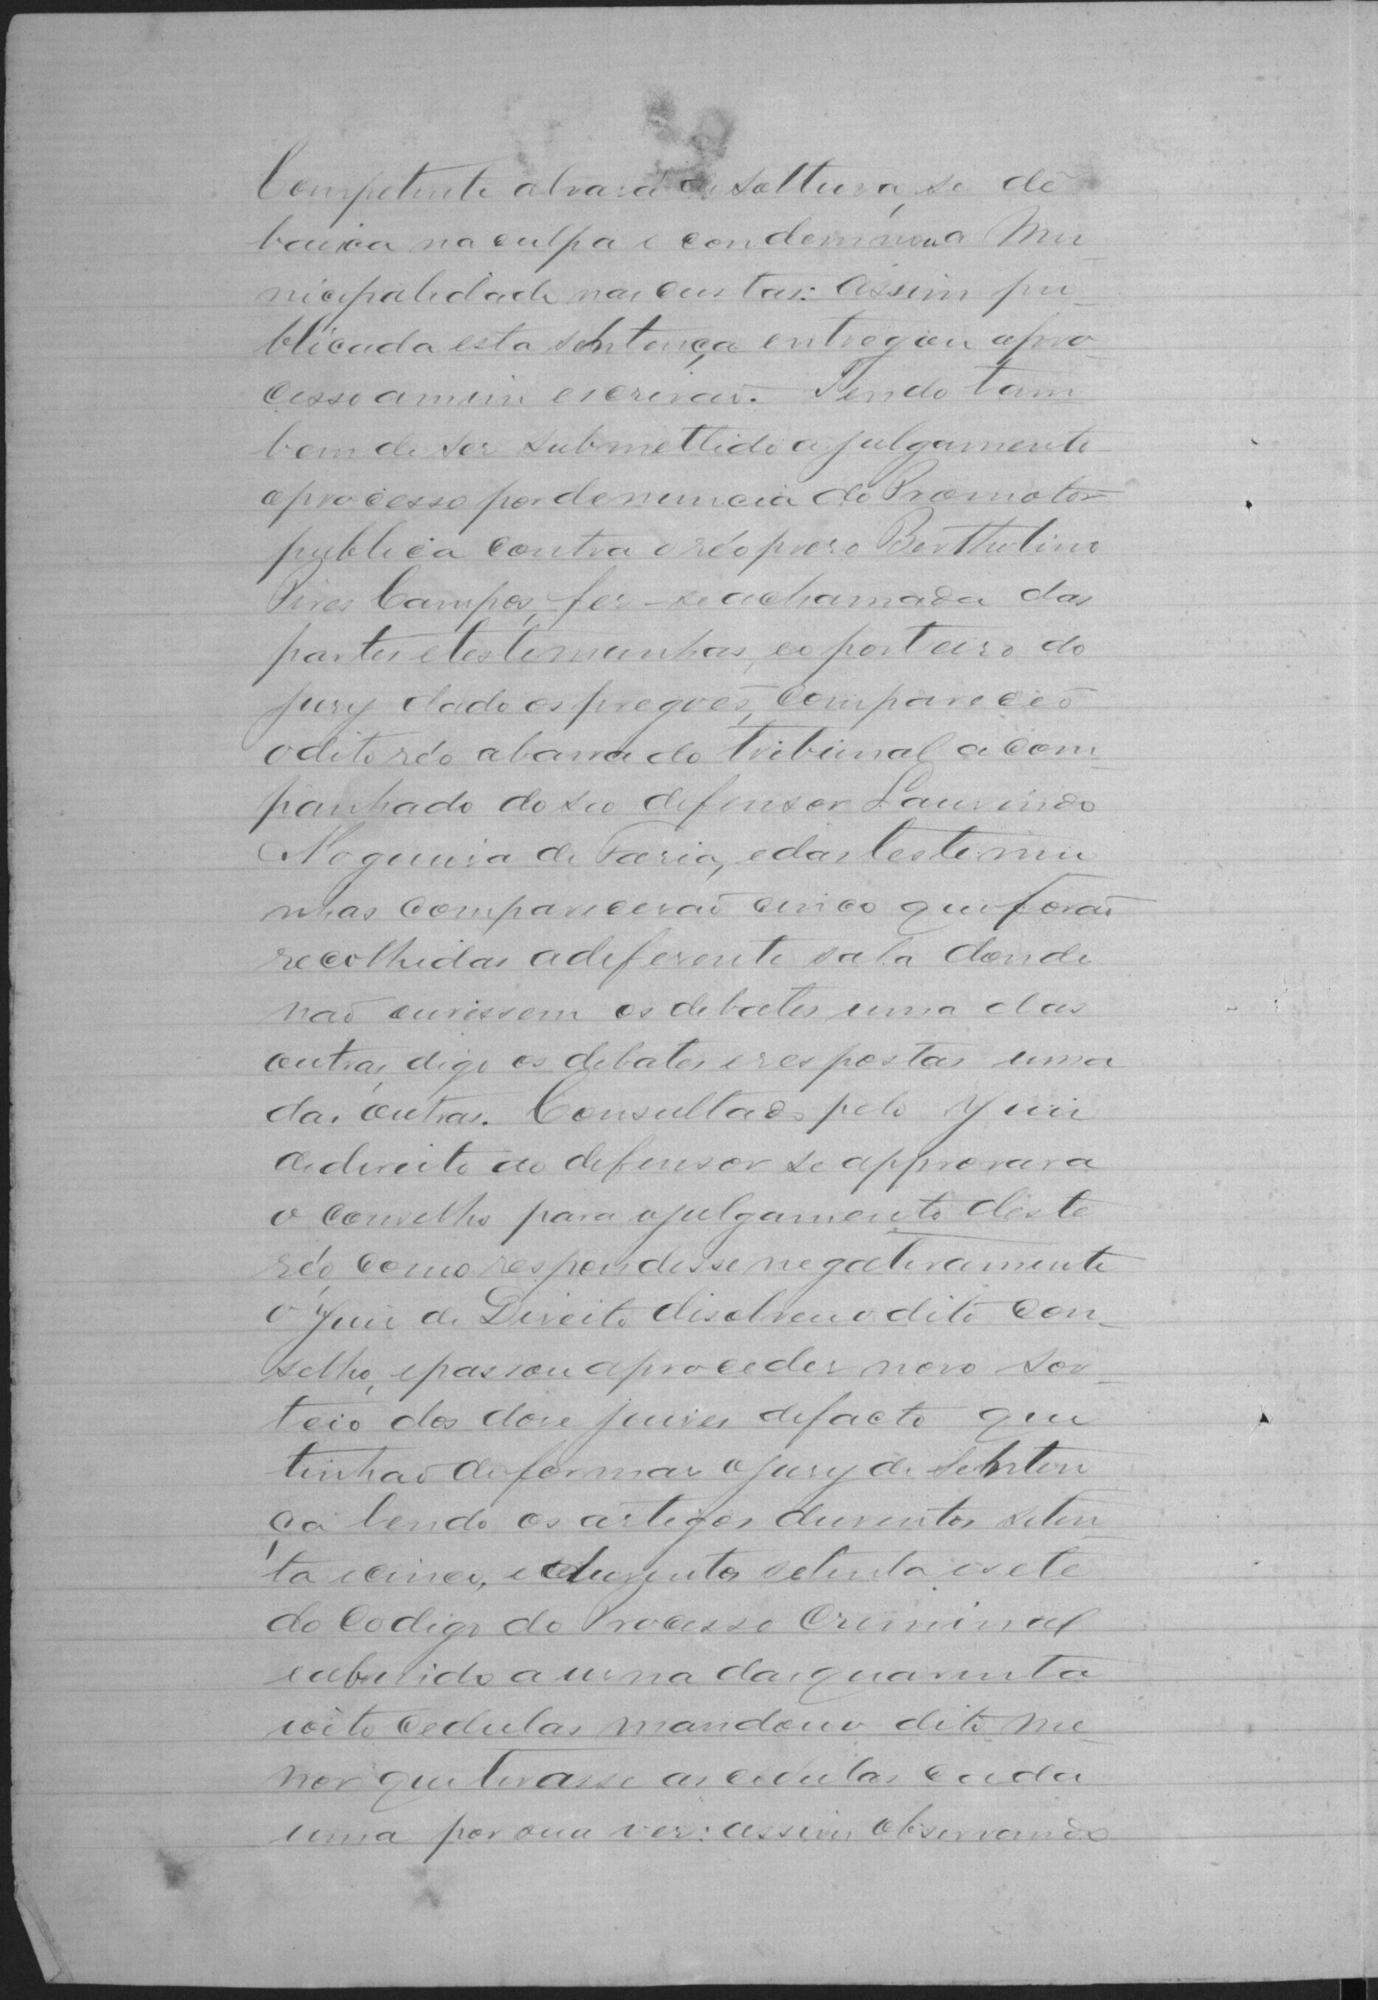 Competente alvará de soltura, se dê
baixa na culpa e condemnou a Mu-
nicipalidade nas custas: Assim pu-
blicada esta sentença entregou o pro-
cesso a mim escrivão. Tendo tam
bem de ser submettido a julgamento
o processo por denuncia do Promotor
publico contra o réo preso Bertholino
Pires Campos, fez-se a chamada das
partes e testemunhas, e o porteiro do
jury dado os pregoēs, compareceo
o dito réo a barra do tribunal acom-
panhado do seo defensor Laurindo
Nogueira de Faria, e das testemu
nhas comparecerão cinco que forão
recolhidas a deferente sala donde
não ouvissem os debates uma das
outras, digo os debates e respostas uma
das outras. Consultado pelo Juiz
de direito ao defensor se approvava
o conselho para o julgamento deste
réo, como respondesse negativamente
o Juiz de Direito disolveu o dito con-
selho, e passou a proceder novo sor-
teio dos doze juizes de facto que
tinhão de formar o jury de senten
ça lendo os artigos duzentos seten
ta e cinco, e duzentos setenta e sete
do Codigo do Processo Criminal
e abrindo a urna das quarenta
e oito cedulas mandou o dito me-
nor que tirasse as cedulas cada
uma por sua vez: assim observando